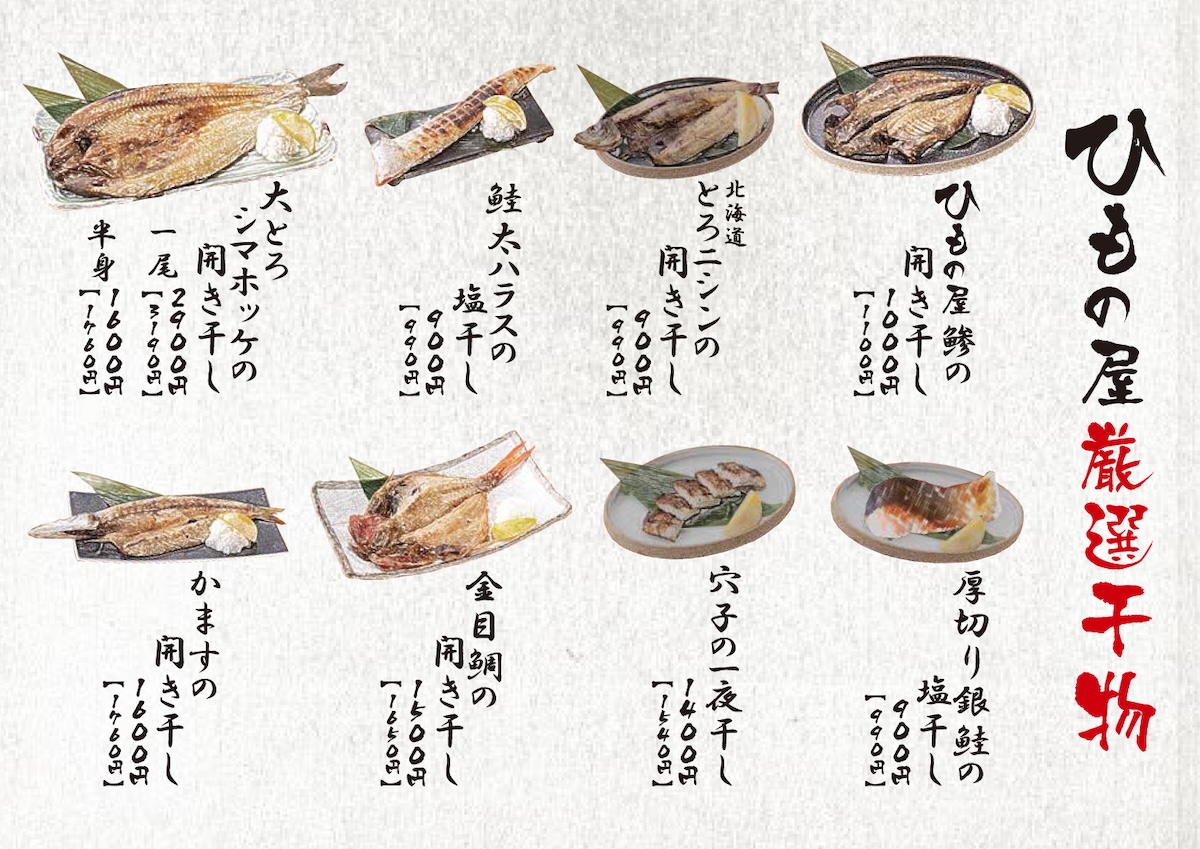 ひもの屋厳選干物
ひもの屋鯵の
開き干し
1000円
【1100円】
北海道
とろニシンの
開き干し
900円
【990円】
鮭太ハラスの
塩干し
900円
【990円】
大とろ
シマホッケの
開き干し
一尾2900円
【3190円】
半身1600円
【1760円】
厚切り銀鮭の
塩干し
900円
【990円】
穴子の一夜干し
1400円
【1540円】
金目鯛の
開き干し
1500円
【1650円】
かますの
開き干し
1600円
【1760円】